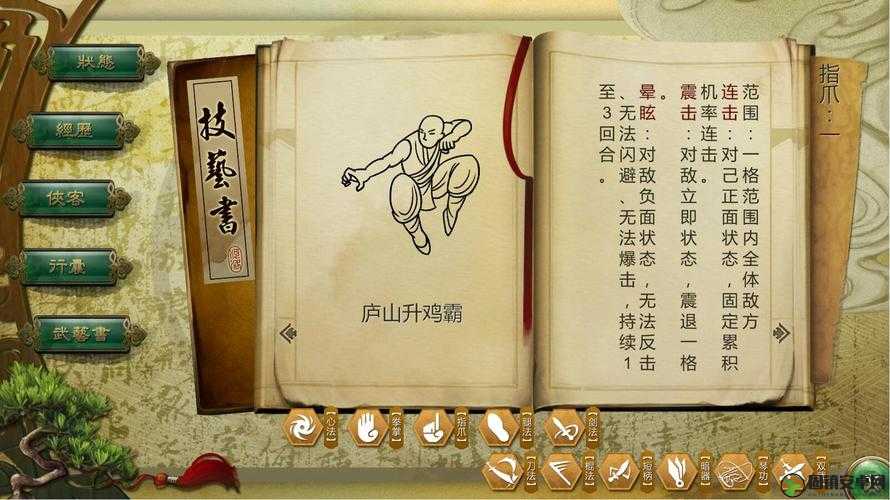 狀態
經歷
俠客
行囊
武藝書
技藝書
庐山升鸡霸
指爪：一
范围：一格范围内全体敌方
连击：对己正面状态，固定累积
机率连击。
震击：对敌立即状态，震退一格
。
晕眩：对敌负面状态，无法反击
、无法闪避、无法爆击，持续1
至3回合。
【心法】
【拳掌】
【指爪】
【腿法】
【剑法】
【刀法】
【棍法】
【短柄】
【暗器】
【琴功】
【双